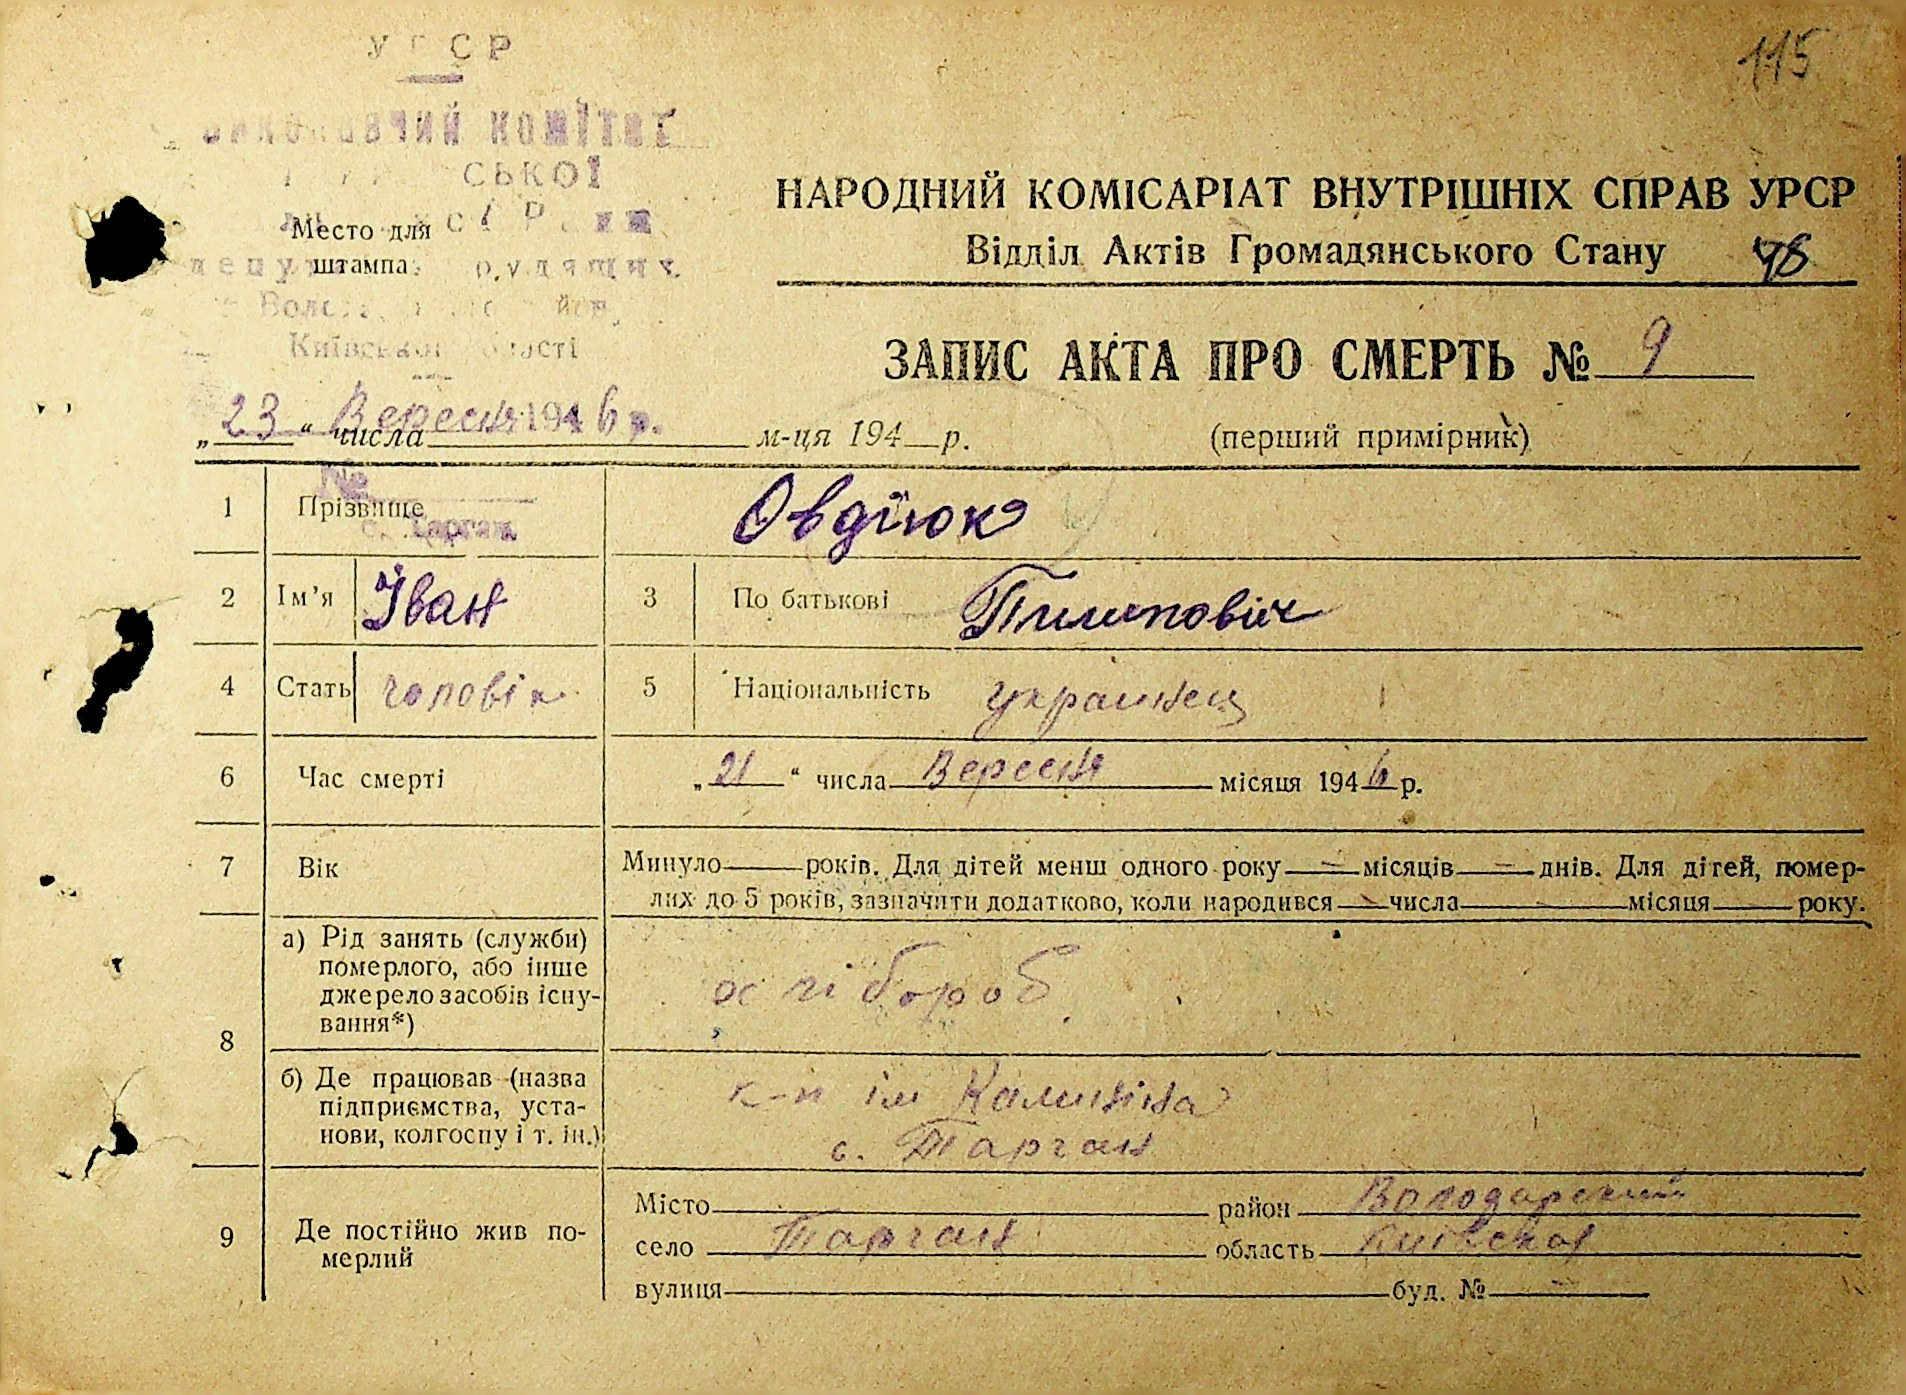 115
УРСР
Виконавчий комітет
СЬКОЇ
Место для
штампа
Київської області
НАРОДНИЙ КОМІСАРІАТ ВНУТРІШНІХ СПРАВ УРСР
Відділ Актів Громадянського Стану
ЗАПИС АКТА ПРО СМЕРТЬ № 9
„23“ числа Вересня 1946 р. м-ця 194 р.
(перший примірник)
№
с. Тарган
1 Прізвище Овдіюк
2 Ім’я Іван 3 По батькові Пилипович
4 Стать чоловік 5 Національність українец
6 Час смерті „21“ числа Вересня місяця 1946 р.
7 Вік Минуло — років. Для дітей менш одного року — місяців — днів. Для дітей, помер-
лих до 5 років, зазначити додатково, коли народився — числа — місяця — року.
8 а) Рід занять (служби)
померлого, або інше
джерело засобів існу-
вання*)
хлібороб
б) Де працював (назва
підприємства, уста-
нови, колгоспу і т. ін.)
к-п ім Калініна
с. Тарган
9 Де постійно жив по-
мерлий
Місто район Володарский
село Тарган область Київская
вулиця буд. №